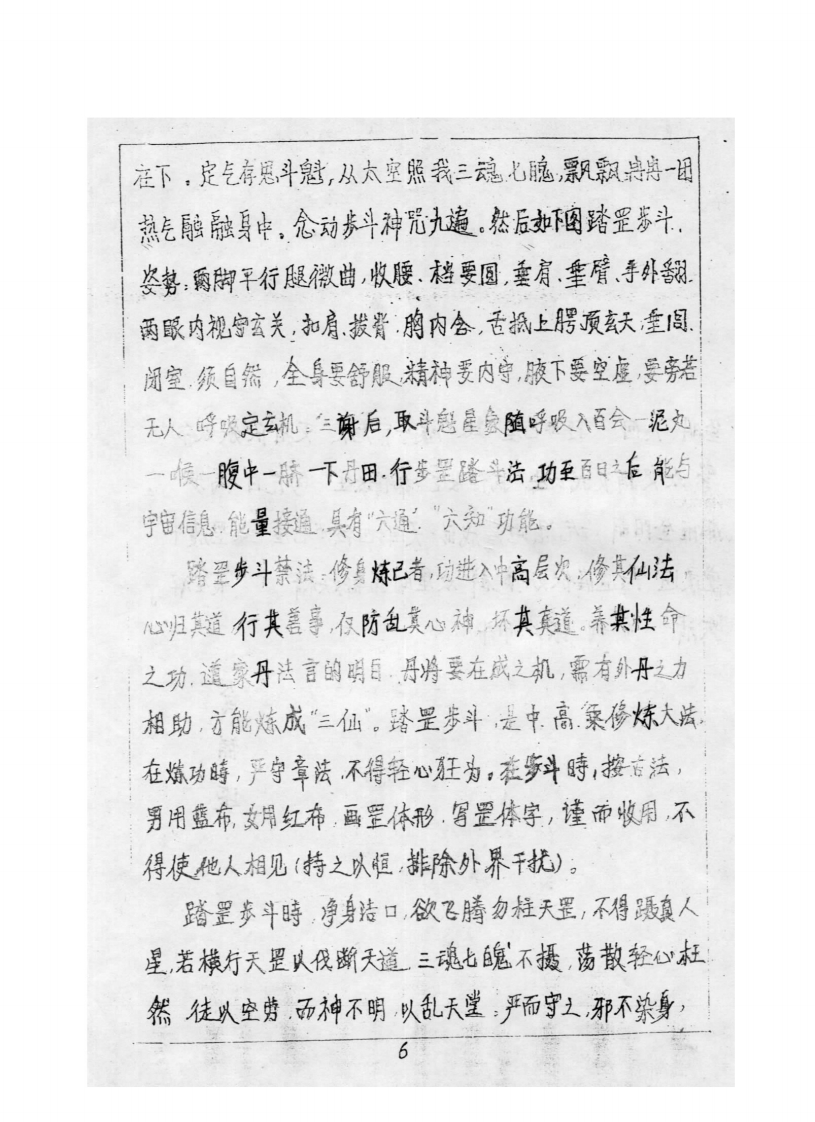 在下。定气存思斗魁,从太空照我三魂七魄,飘飘冉冉一团
热气融融身中。念动步斗神咒九遍。然后如下图踏罡步斗.
姿势:两脚平行腿微曲,收腰、裆要圆,垂肩、垂臂、手外翻.
两眼内视守玄关,扣肩、拔背、胸内含,舌抵上腭顶玄天,垂
闭室.须自然,全身要舒服,精神要内守,腋下要空虚,要旁若
无人 呼吸定玄机。三谢后,取斗魁星象随呼吸入百会一泥丸
一喉一腹中一脐一下丹田.行步罡踏斗法,功至百日之后能与
宇宙信息.能量接通.具有“六通”.“六知”功能。
踏罡步斗禁法:修身炼己者,功进入中高层次,修其仙法
心归其道 行其善事,仅防乱其心神.坏其真道。养其性命
之功.道家丹法言的明白.丹将要在成之机,需有外丹之力
相助,方能炼成“三仙”。踏罡步斗.是中.高.乘修炼大法.
在炼功時,严守章法.不得轻心狂为。在步斗時,按古法,
男用蓝布,女用红布.画罡体形.写罡体字,谨而收用,不
得使他人相见(持之以恒,排除外界干扰)。
踏罡步斗時.净身洁口,欲飞腾勿柱天罡,不得蹑真人
星,若横行天罡以伐断天道.三魂七魄不摄,荡散轻心.枉
然.徒以空劳.而神不明,以乱天堂;严而守之,邪不染身,
6